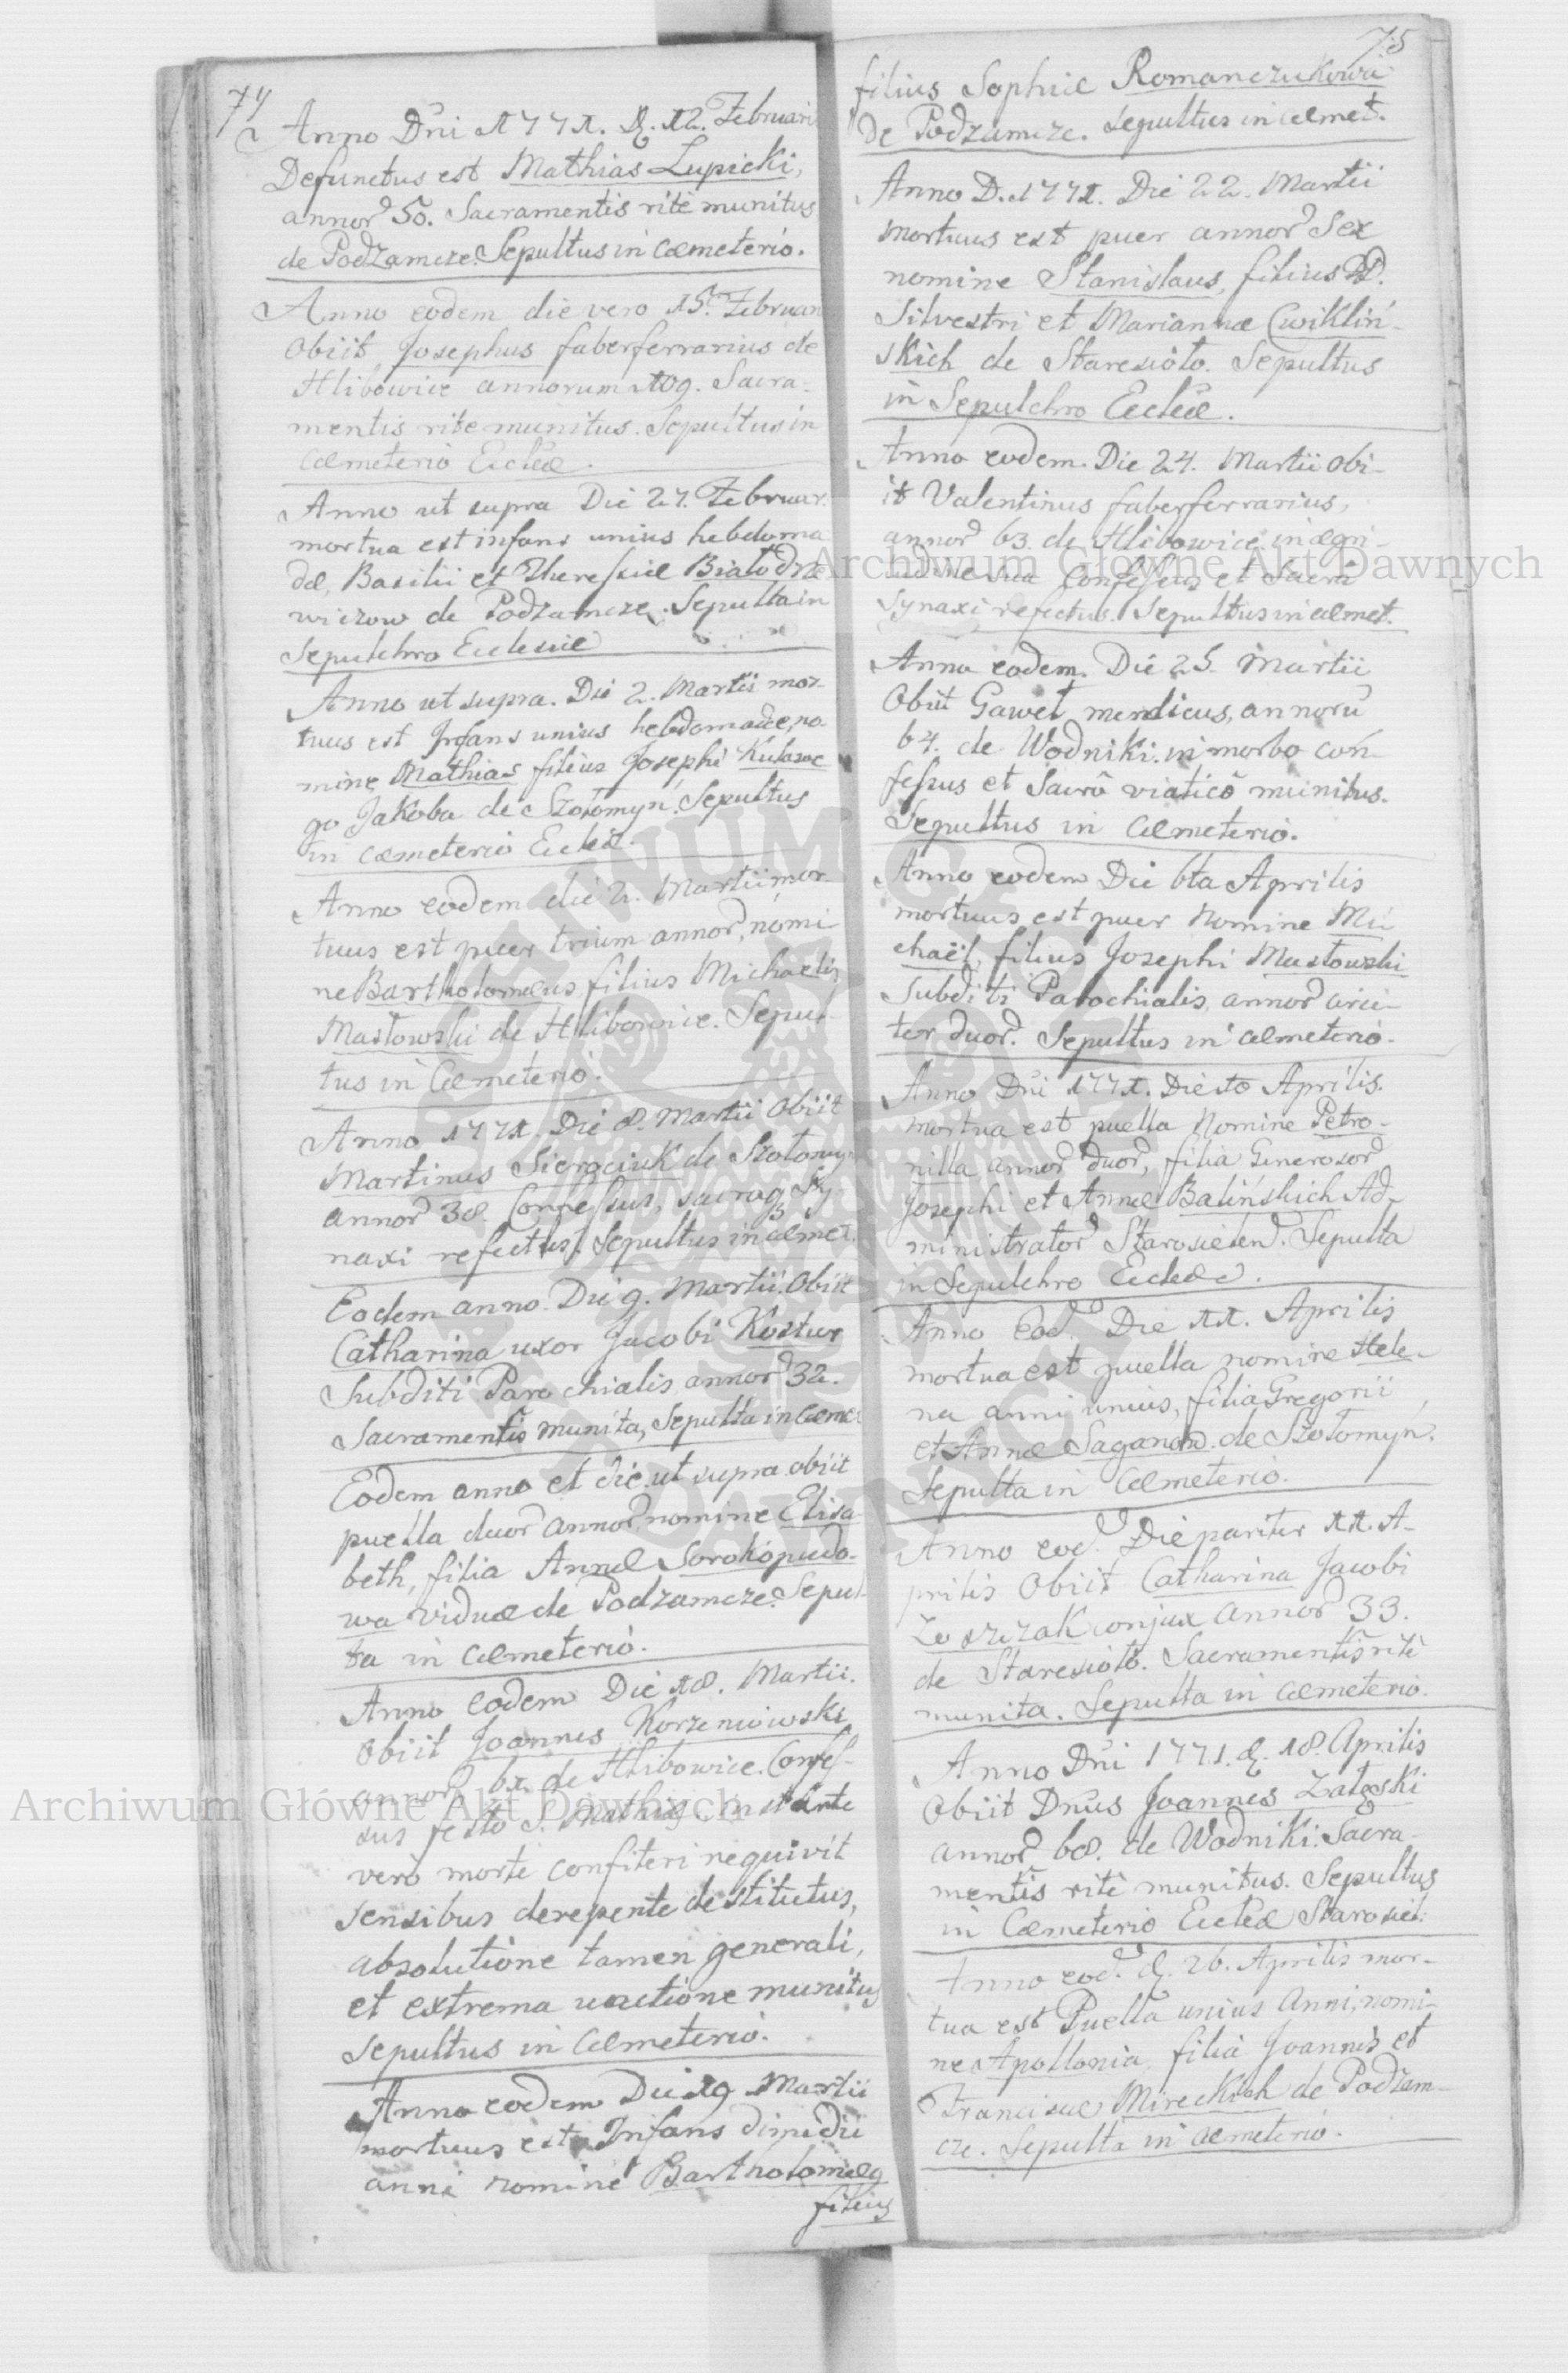 74
Anno Dni 1771. d. 12. Februarii
Defunctus est Mathias Lupicki,
annor 50. Sacramentis ritè munitus
de Podzamcze. Sepultus in cæmeterio.
Anno eodem die vero 15. Februarii
Obiit Josephus faberferrarius de
Hlibowice annorum 109. Sacra-
mentis rite munitus. Sepultus in
Cæmeterio Eccliæ.
Anno ut supra Die 27. Februar.
mortua est infans unius hebdoma
dæ, Basilii et Theressiæ
wiczow de Podzamcze. Sepulta in
Sepulchro Ecclesiæ
Anno ut supra. Die 2. Martii mor-
tuus est Infans unius hebdomadæ, no-
mine Mathias filius Josephi
go Jakoba de Szołomyń. Sepultus
in cæmeterio Eccliæ.
Anno eodem die 2. Martii mor-
tuus est puer trium annor, nómi-
ne Bartholomæus filius Michaelis
Masłowski de Hlibowice. Sepul-
tus in Cæmeterio.
Anno 1771. Die 8. Martii Obiit
Martinus Sierociuk de Szołomyń
annor 38. Confessus, sacraq Sy-
naxi refectus. Sepultus in cæmet.
Eodem anno. Die 9. Martii. Obiit
Catharina uxor Jacobi Kostur
Subditi Parochialis annor 32.
Sacramentis munita, Sepulta in Cæmet
Eodem anno et die ut supra obiit
puella duor annor, nomine Elisa-
beth, filia Annæ Sorokopudo-
wa viduæ de Podzamcze. Sepul-
ta in cæmeterió.
Anno eodem Die 18. Martii.
obiit Joannes Korzeniowski
annor 61. de Hlibowice. Confes-
sus festo S. Mathiæ, instante
verò morte confiteri nequivit
sensibus derepente destitutus,
absolutione tamen generali,
et extrema unctione munitus
sepultus in Cæmeterió.
Anno eodem Die 19 Martii
mortuus est Infans dimidii
anni nomine Bartholomæq
filius
75
filius Sophiæ Romanczukowa
de Podzamcze. sepultus in cæmet.
Anno D. 1771. Die 22. Martii
mortuus est puer annor Sex
nomine Stanislaus, filius DD.
Silvestri et Mariannæ Cwikliń-
skich de Staresioło. Sepultus
in Sepulchro Eccliæ.
Anno eodem. Die 24. Martii obi-
it Valentinus faberferrarius,
annor 63. de Hlibowice. in ægri-
tudine sua confessus et Sacrâ
Synaxi refectus. Sepultus in cæmet.
Anno eodem. Die 25. Martii
Obiit Gaweł mendicus, annorū
64. de Wodniki. in morbo con-
fessus et Sacrô viaticô munitus.
Sepultus in Cæmeterió.
Anno eodem Die 6ta Aprilis
mortuus est puer Nomine Mi-
chaël, filius Josephi Masłowski
Subditi Parochialis, annor circi-
ter duor. Sepultus in cæmeterió.
Anno Dni 1771. Die 10 Aprilis.
mortua est puella Nomine Petro-
nilla annor duor, filia Generosor
Josephi et Annæ Balińskich Ad-
ministrator Starosielen. Sepulta
in Sepulchro Eccleæ.
Anno Eod. Die 11. Aprilis
mortua est puella nomine Hele-
na anni unius, filia Gregorii
et Annæ Saganow. de Szołomyń.
Sepulta in Cæmeterio.
Anno eod. Die pariter 11. A-
prilis Obiit Catharina Jacobi
conjux annor 33.
de Staresioło. Sacramentis ritè
munita. Sepulta in Cæmeterio.
Anno Dni 1771. d. 18. Aprilis
Obiit Dnus Joannes Załęski
annor 68. de Wodniki. Sacra-
mentis ritè munitus. Sepultus
in Cæmeterio Eccleæ Starosiel.
Anno eod. d. 26. Aprilis mor-
tua est Puella unius Anni, nomi-
ne Apollonia, filia Joannis et
Franciscæ Mireckich de Podzam-
cze. Sepulta in cæmeterio.
Archiwum Główne Akt Dawnych
Archiwum Główne Akt Dawnych